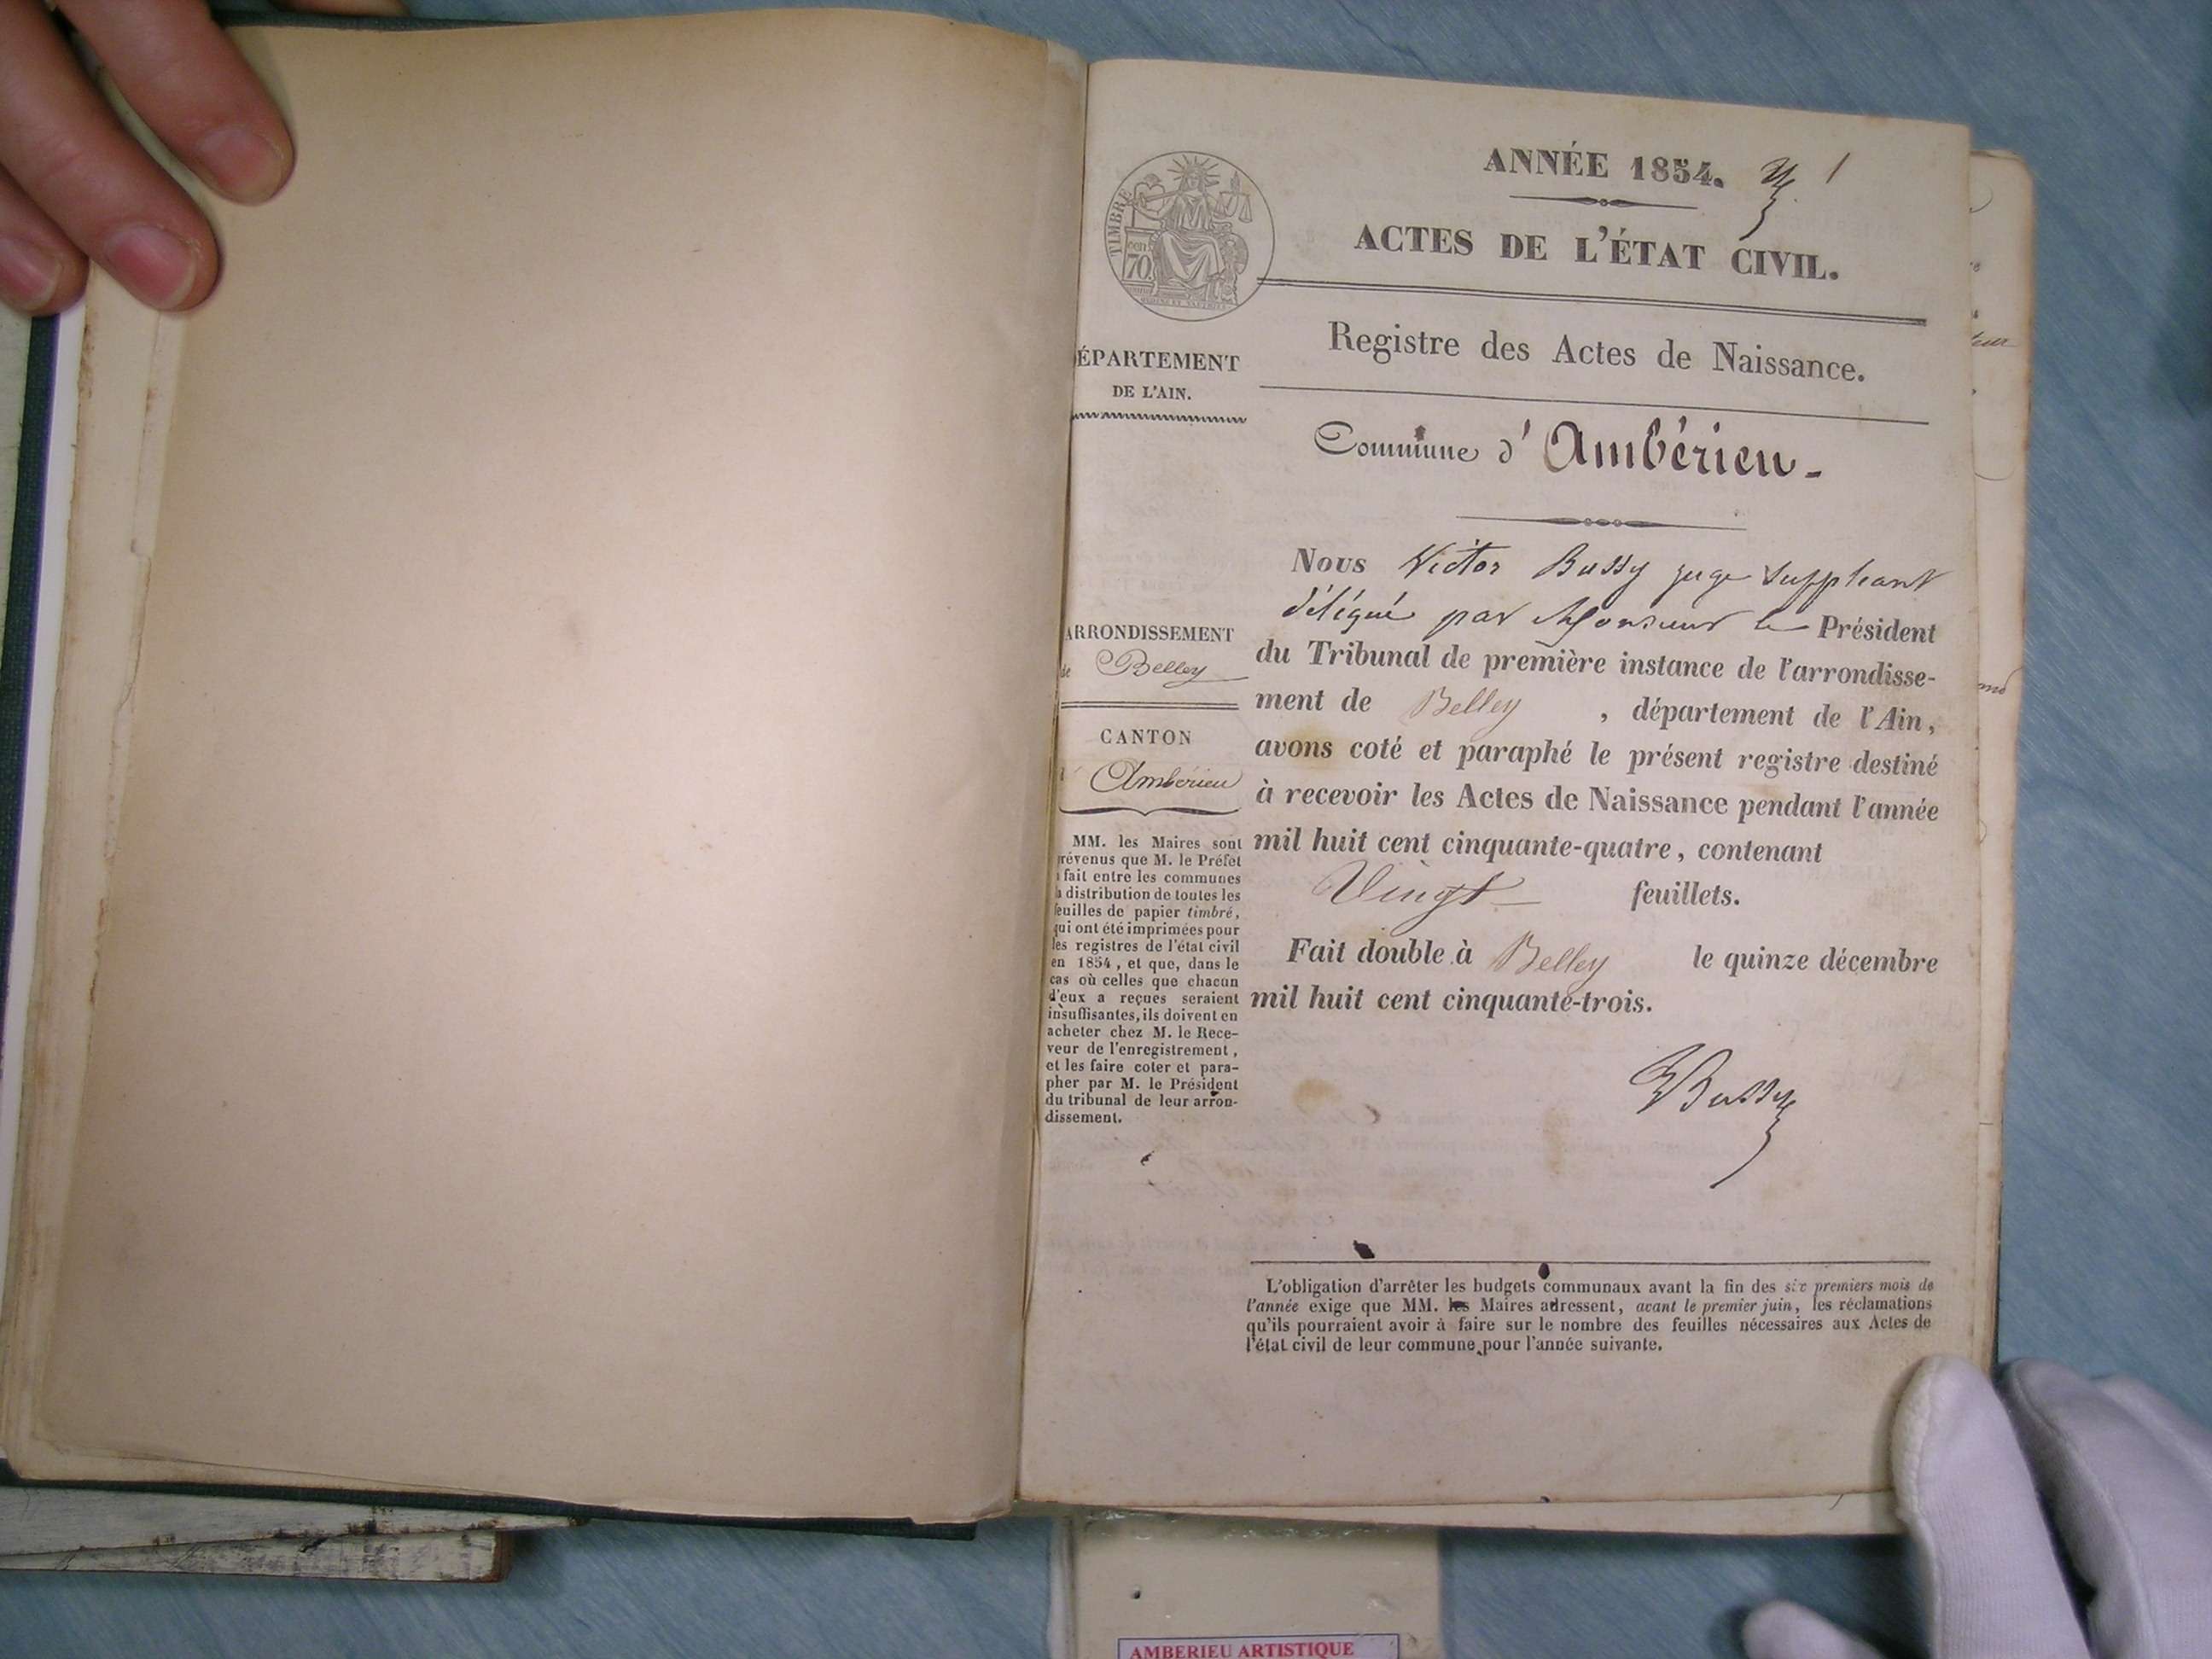 ANNÉE 1854. 1
ACTES DE L'ÉTAT CIVIL.
TIMBRE
cen.
70.
Registre des Actes de Naissance.
ÉPARTEMENT
DE L'AIN.
Commune d'Ambérieu-
Nous Victor Bussy juge suppléant
délégué par Monsieur le Président
du Tribunal de première instance de l'arrondisse-
ment de Belley , département de l'Ain,
avons coté et paraphé le présent registre destiné
à recevoir les Actes de Naissance pendant l'année
mil huit cent cinquante-quatre, contenant
Vingt feuillets.
Fait double à Belley le quinze décembre
mil huit cent cinquante-trois.
VBussy
ARRONDISSEMENT
de Belley
CANTON
d' Ambérieu
MM. les Maires sont
prévenus que M. le Préfet
a fait entre les communes
la distribution de toutes les
feuilles de papier timbré,
qui ont été imprimées pour
les registres de l'état civil
en 1854, et que, dans le
cas où celles que chacun
d'eux a reçues seraient
insuffisantes, ils doivent en
acheter chez M. le Rece-
veur de l'enregistrement,
et les faire coter et para-
pher par M. le Président
du tribunal de leur arron-
dissement.
L'obligation d'arrêter les budgets communaux avant la fin des six premiers mois de
l'année exige que MM. les Maires adressent, avant le premier juin, les réclamations
qu'ils pourraient avoir à faire sur le nombre des feuilles nécessaires aux Actes de
l'état civil de leur commune pour l'année suivante.
AMBERIEU ARTISTIQUE